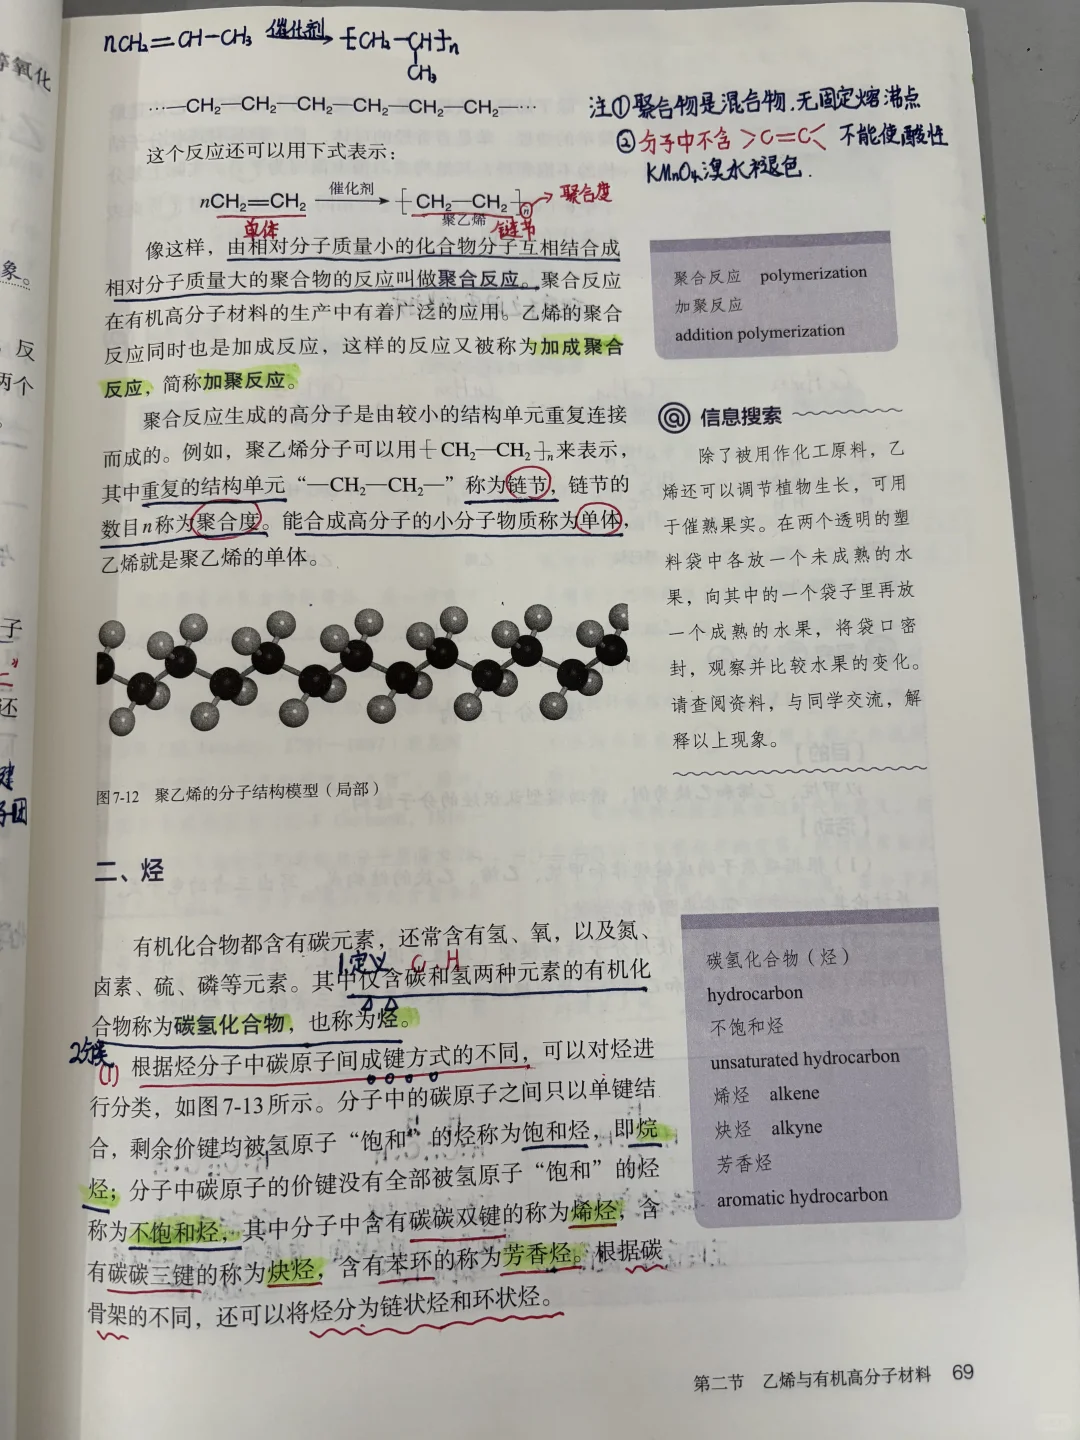 等氧化
象。
反
两个
子
还
键
nCH₂=CH-CH₃ 催化剂→ ⁅CH₂-CH⁆n
CH₃
···—CH₂—CH₂—CH₂—CH₂—CH₂—CH₂—···
注①聚合物是混合物.无固定熔沸点
②分子中不含 >C=C< 不能使酸性
KMnO₄溴水褪色.
这个反应还可以用下式表示：
nCH₂=CH₂ 催化剂→ ⁅CH₂—CH₂⁆n → 聚合度
聚乙烯
单体 链节
像这样，由相对分子质量小的化合物分子互相结合成
相对分子质量大的聚合物的反应叫做聚合反应。聚合反应
在有机高分子材料的生产中有着广泛的应用。乙烯的聚合
反应同时也是加成反应，这样的反应又被称为加成聚合
反应，简称加聚反应。
聚合反应生成的高分子是由较小的结构单元重复连接
而成的。例如，聚乙烯分子可以用⁅CH₂—CH₂⁆n来表示，
其中重复的结构单元“—CH₂—CH₂—”称为链节，链节的
数目n称为聚合度。能合成高分子的小分子物质称为单体，
乙烯就是聚乙烯的单体。
聚合反应 polymerization
加聚反应
addition polymerization
@ 信息搜索
除了被用作化工原料，乙
烯还可以调节植物生长，可用
于催熟果实。在两个透明的塑
料袋中各放一个未成熟的水
果，向其中的一个袋子里再放
一个成熟的水果，将袋口密
封，观察并比较水果的变化。
请查阅资料，与同学交流，解
释以上现象。
图7-12 聚乙烯的分子结构模型（局部）
二、烃
有机化合物都含有碳元素，还常含有氢、氧，以及氮、
1.定义 C H
卤素、硫、磷等元素。其中仅含碳和氢两种元素的有机化
合物称为碳氢化合物，也称为烃。
2分类
(1) 根据烃分子中碳原子间成键方式的不同，可以对烃进
行分类，如图7-13所示。分子中的碳原子之间只以单键结
合，剩余价键均被氢原子“饱和”的烃称为饱和烃，即烷
烃；分子中碳原子的价键没有全部被氢原子“饱和”的烃
称为不饱和烃，其中分子中含有碳碳双键的称为烯烃，含
有碳碳三键的称为炔烃，含有苯环的称为芳香烃。根据碳
骨架的不同，还可以将烃分为链状烃和环状烃。
碳氢化合物（烃）
hydrocarbon
不饱和烃
unsaturated hydrocarbon
烯烃 alkene
炔烃 alkyne
芳香烃
aromatic hydrocarbon
第二节 乙烯与有机高分子材料 69